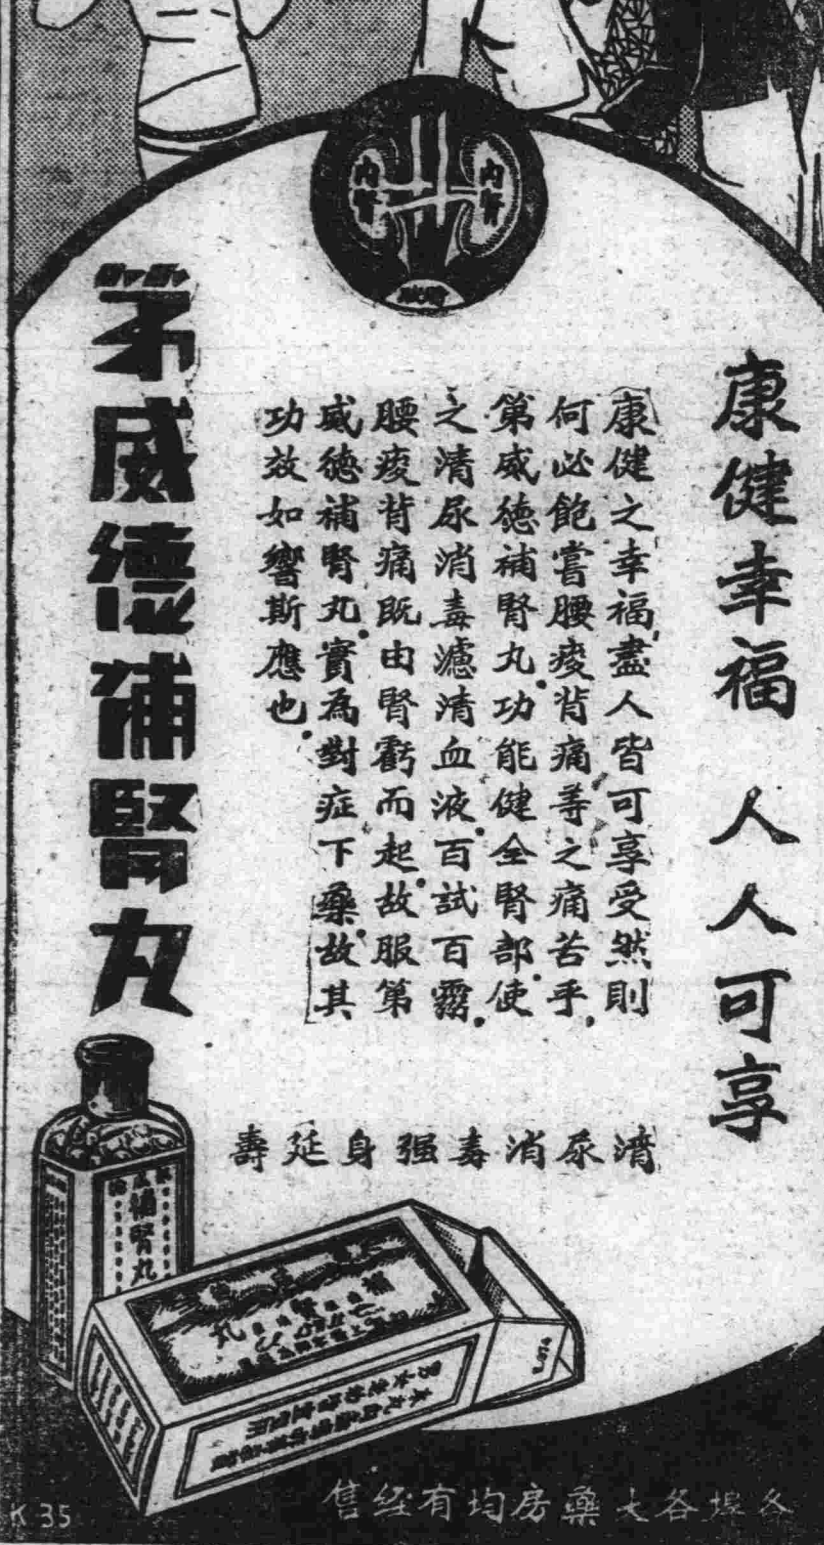 內腎
內腎
康健幸福 人人可享
康健之幸福，盡人皆可享受然則
何必飽嘗腰痠背痛等之痛苦乎，
第威德補腎丸。功能健全腎部。使
之清尿消毒濾清血液。百試百靈。
腰痠背痛既由腎虧而起。故服第
威德補腎丸。實為對症下藥。故其
功效如響斯應也。
第威德補腎丸
清尿消毒强身延壽
補腎丸
各埠各大藥房均有經售
K 35